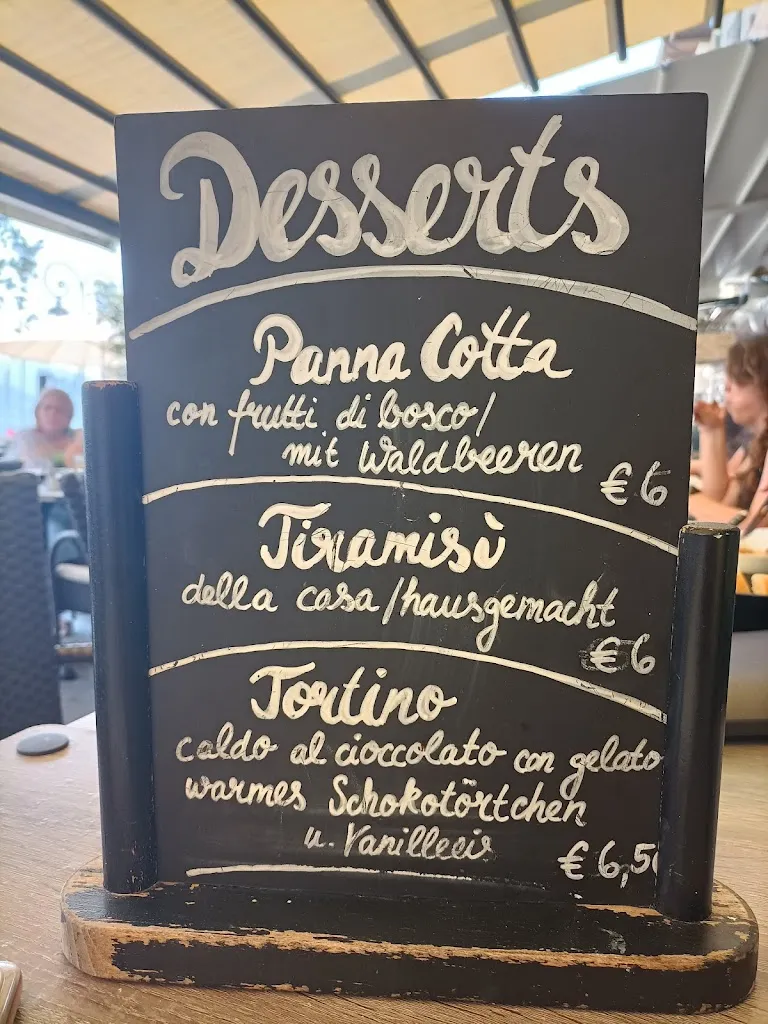 Desserts
Panna Cotta
con frutti di bosco/
mit Waldbeeren
€ 6
Tiramisù
della casa/hausgemacht
€ 6
Tortino
caldo al cioccolato con gelato
warmes Schokotörtchen
u. Vanilleeis
€ 6,50